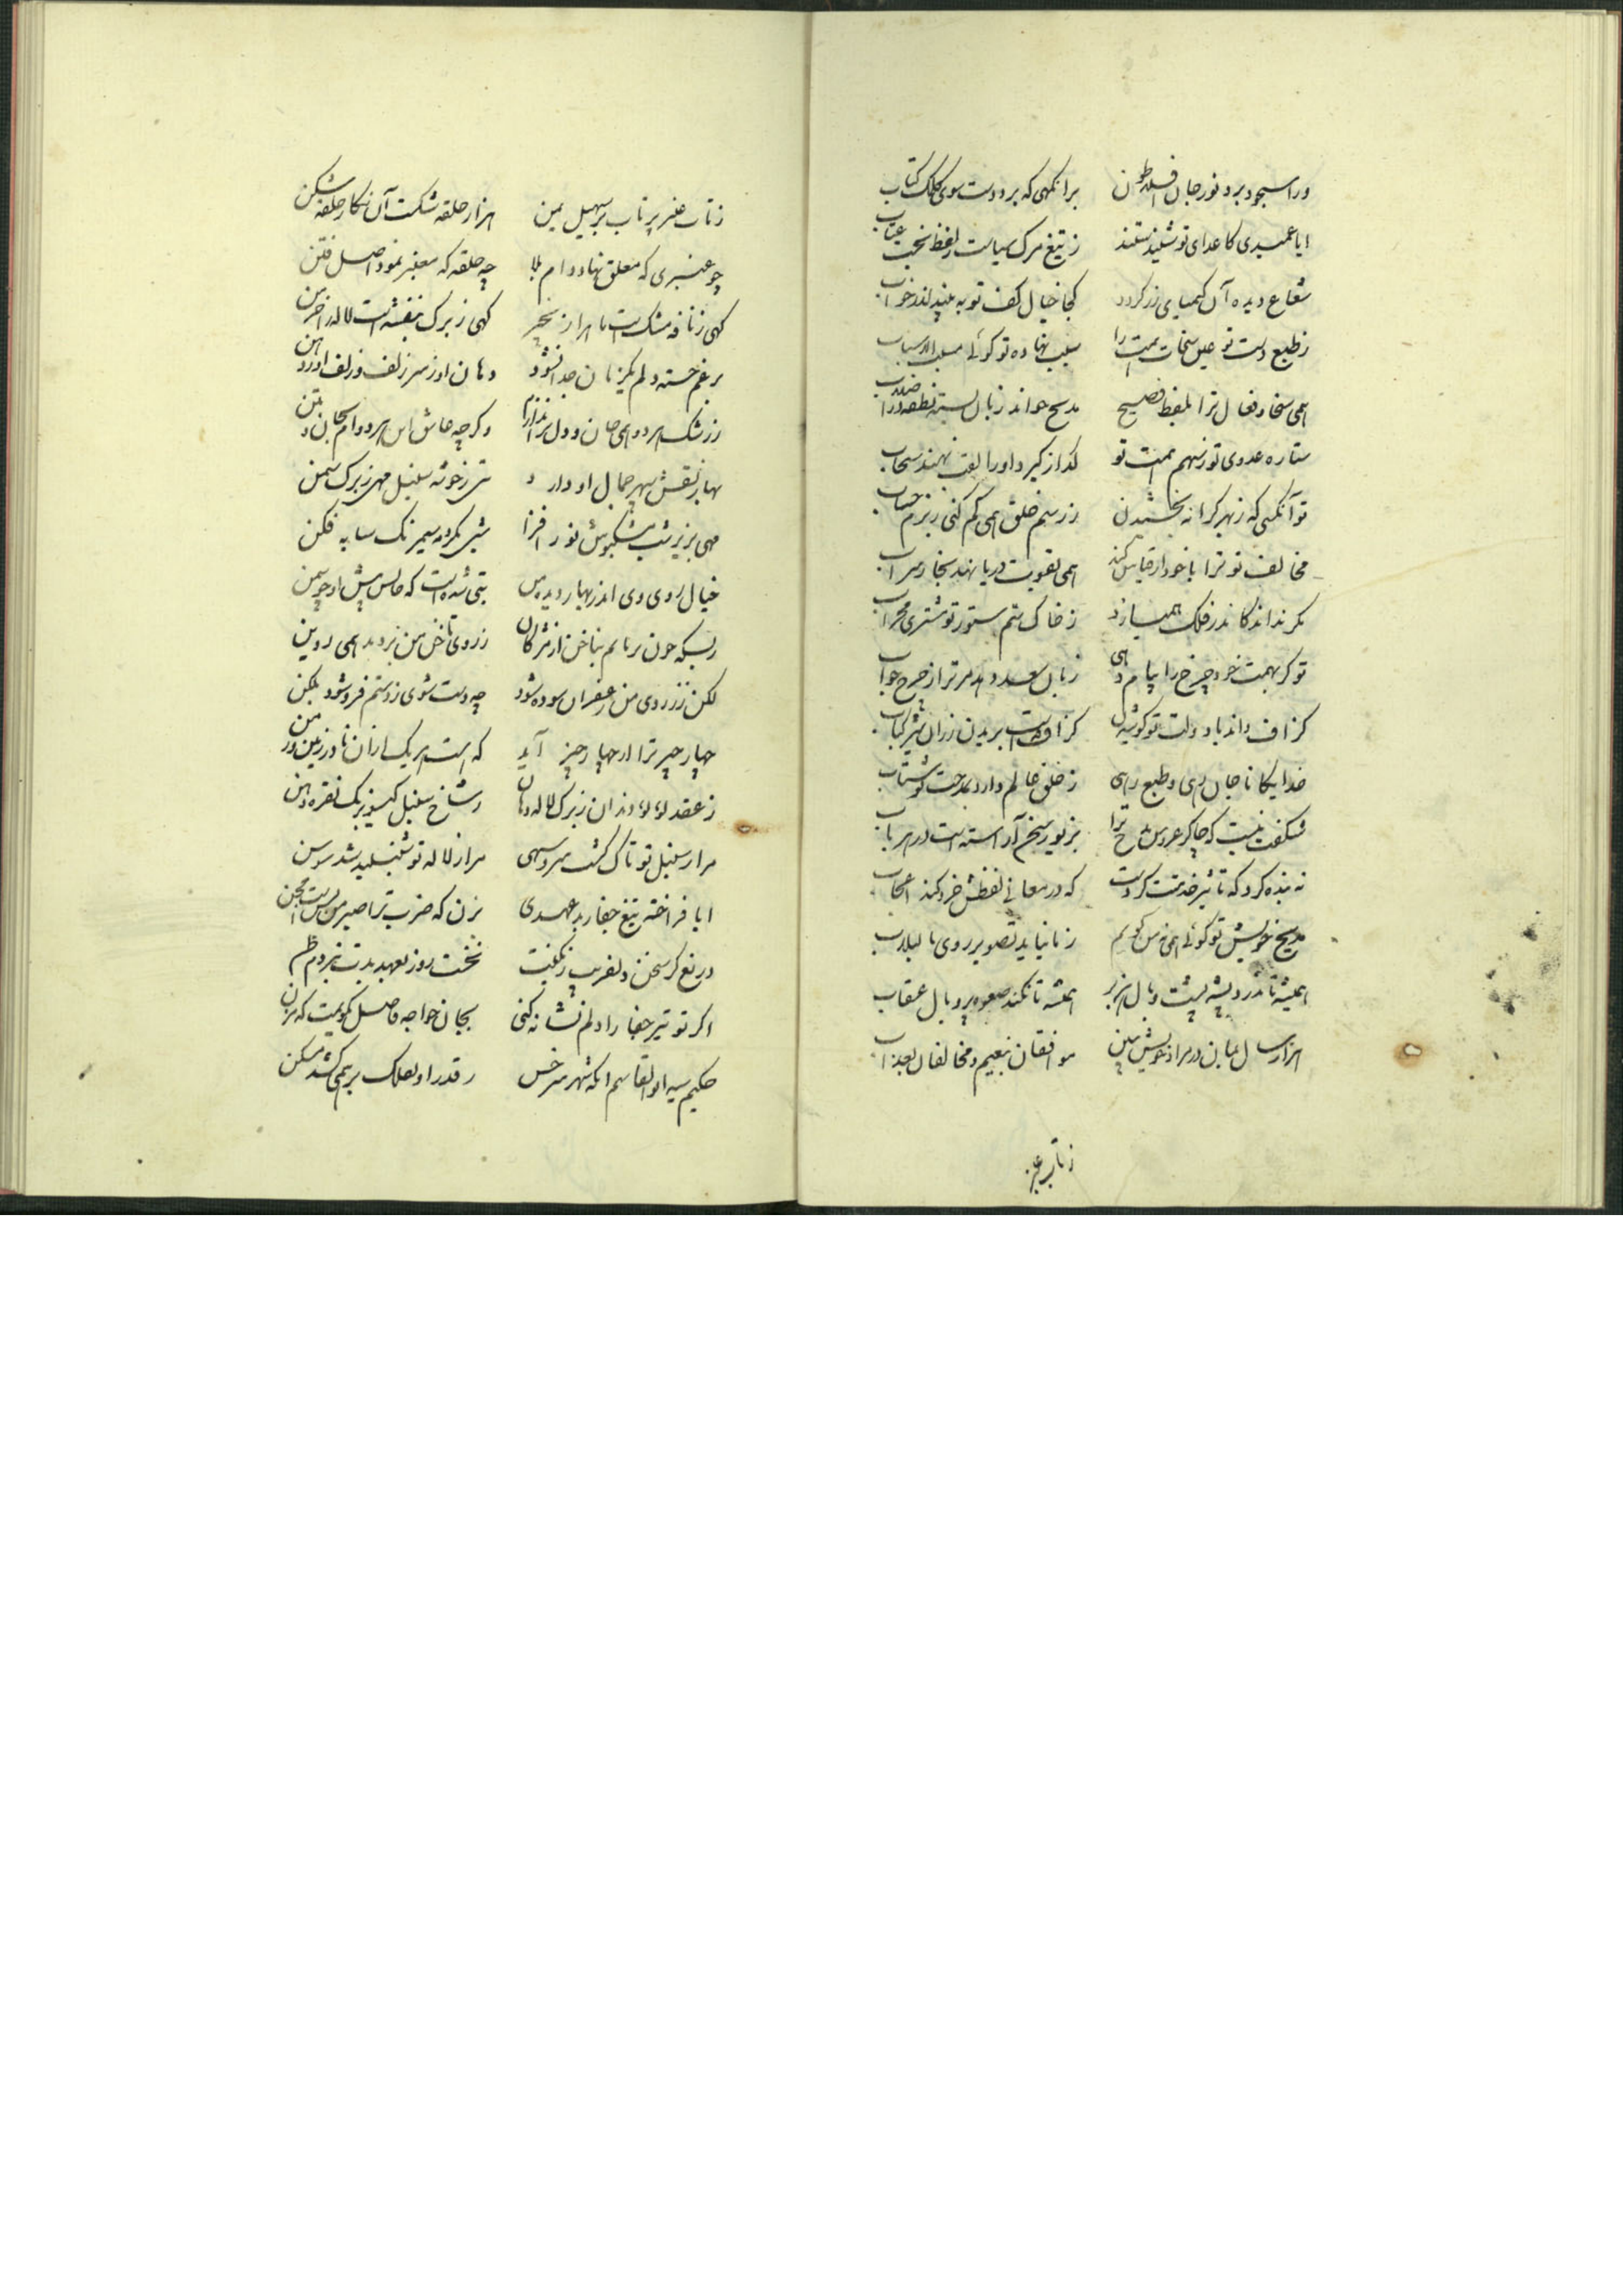 ورا سجود برد نور جان افلاطون برانگهی که برد دست سوی کلک کتاب
ایا عمیدی کاعدای تو شنیدستند ز تیغ مرک سیاست ز لفظ عتاب
شعاع دیده آن کیمیای زر کردد کجا خیال کف تو به بیند اندر خواب
ز طبع دست تو عین سخات همت را نهاده تو کوئی
همی سخا و فعال ترا بلفظ فصیح مدیح خواند زبان بسته نطفه در اصلاب
ستاره عدوی تو ز سهم همت تو کداز کیرد او را لقب نهند سحاب
تو آنکسی که ز بهر کرانه بخشیدن ز رسم خلق همی کم کنی
مخالف تو ترا با خود ار قیاس کند همی تقویت دریا نهد بجای سراب
مکر نداند کاندر فلک همی سازد ز خاک سم ستور تو مشتری محراب
تو کر بهمت خود چرخ را پیام دهی زبان سعد دهد مر ترا ز چرخ جواب
کزاف داند با دولت تو کوشیدن کزاف نیست بریدن ز ران شیر کباب
خدایکانا جان رهی و طبع رهی ز خلق عالم دارد بمدحت تو شتاب
شکفت نیست که چاکر عروس مدح ترا بزیور سخن آراسته است در هر باب
نه بنده کرد که تاثیر خدمتت کردست که در معانی لفظش خرد کند اعجاب
مدیح خویش تو کوئی همی نه من کویم
همیشه تا ندرد پیشه پشت و بال هزبر همیشه تا نکند صعوه پر و بال عقاب
هزار سال بمان در مراد خویش ببین موافقان بنعیم و مخالفان بعذاب
ز تاب عنبر
ز تاب عنبر پر تاب بر سهیل یمن هزار حلقه شکست آن نکار حلقه شکن
چو عنبری که معلق نهاد دام بلا چه حلقه که معنبر نمود اصل فتن
کهی ز نافه مشک است با هزار زنجیر کهی ز برک بنفشه است لاله را خرمن
برغم خسته دلم یکزمان جدا نشود دهان او ز سر زلف و زلف او ز دهن
ز رشک هر دو همی جان و دل و کرچه عاشق این هر دوام بجان و بتن
بهار نقش سپهر جمال او دارد بتی ز خوشه سنبل مهی ز برک سمن
مهی بزیر شب مشکپوش نور افزا شبی بکرد مه سیمرنک سایه فکن
خیال روی وی اندر بهار دیده من بتی شده است که جانش پیش او چو شمن
ز بسکه خون برنانم بناخن از مژکان ز روی ناخن من بردمد همی روین
لکن ز زردی من زعفران سوده شود چه دست شوی ز دستم فرو شود بلکن
چهار چیز ترا از چهار چیز آید که هست هر یک ازان نادر زمین و زمن
ز عقد لؤلؤ دندان ز برک لاله دهان ز شاخ سنبل کیسو ز برک نقره ذقن
مرا ز سنبل تو تاک کشت سرو سهی مرا ز لاله تو شنبلید شد سوسن
ایا فراخته تیغ جفا ز بدعهدی بزن که ضرب ترا صبر من بس است مجن
دریغ کر سخن دلفریب رنکینت نخست روز بعهد بدت نبردم ظن
اکر تو تیر جفا را دلم نشانه کنی بجان خواجه فاضل بکویمت که بزن
حکیم سید ابوالقاسم آنکه شهر سرخس ز قدر او بفلک بر همی کشد مسکن